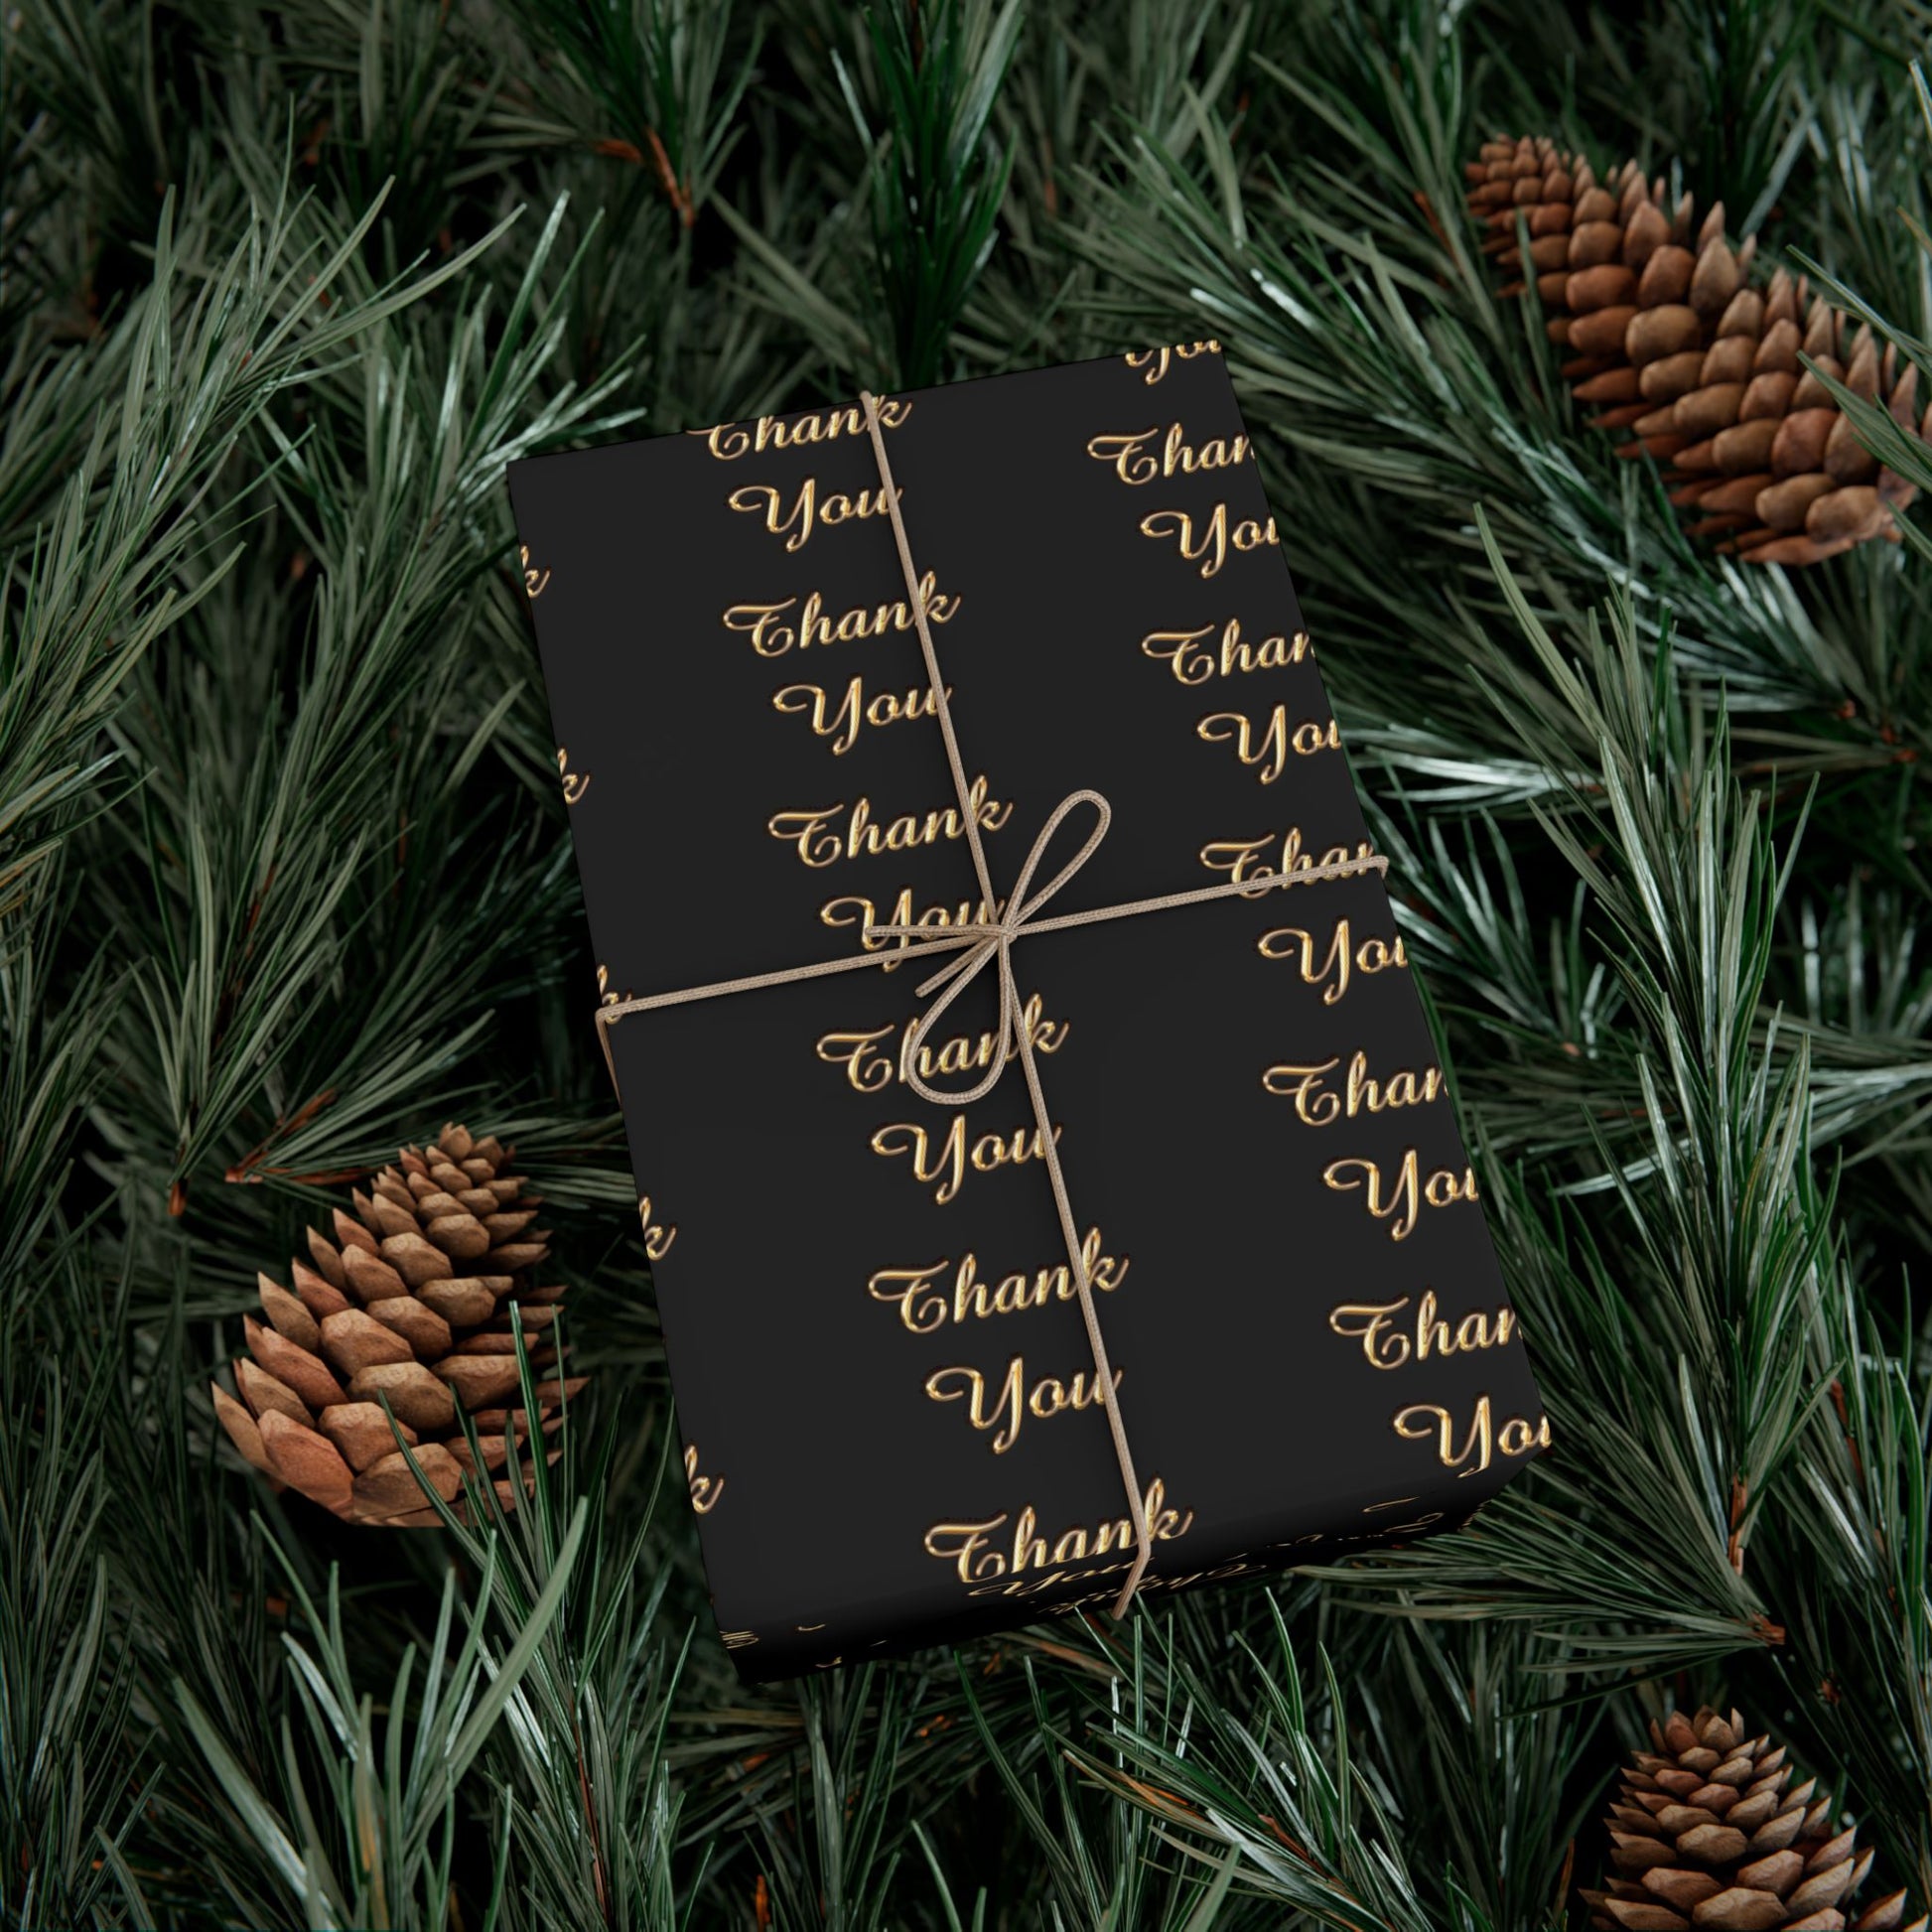 Thank
You
Thank
You
Thank
You
Thank
You
Thank
You
Thank
You
You
Than
You
Than
You
Than
You
Than
You
Than
You
k
k
k
k
k